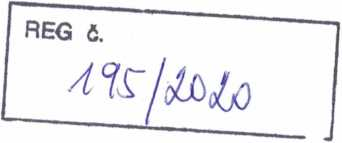 REG č.
195/2020